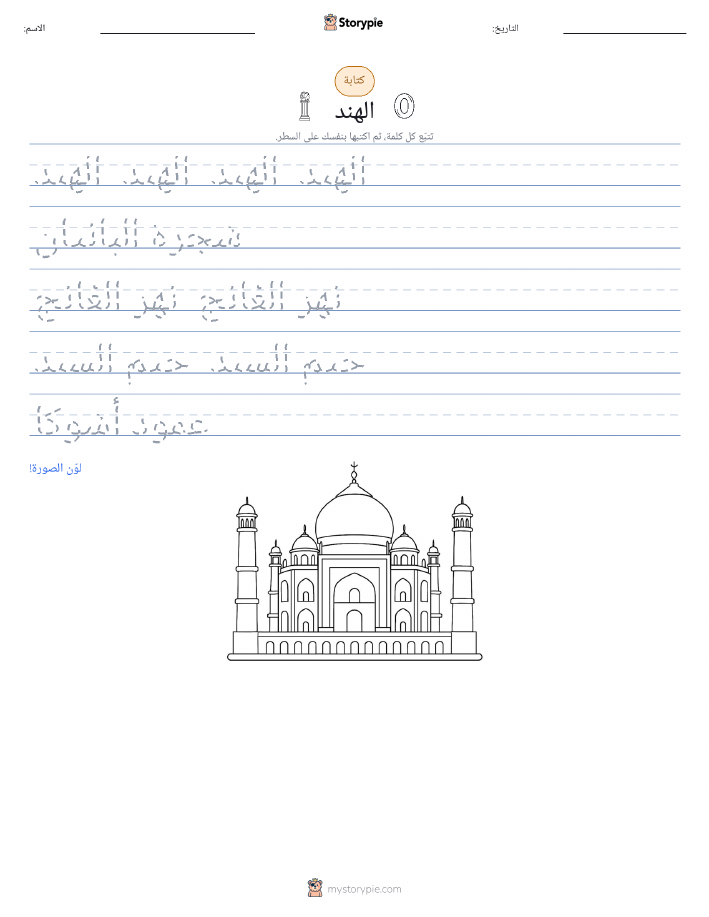 الاسم:
Storypie
التاريخ:
كتابة
الهند
تتبّع كل كلمة، ثم اكتبها بنفسك على السطر.
الهند الهند الهند الهند
شجرة البانيان
نهر الغانج نهر الغانج
حديد السند حديد السند
عمود أشوكا
لوّن الصورة!
mystorypie.com